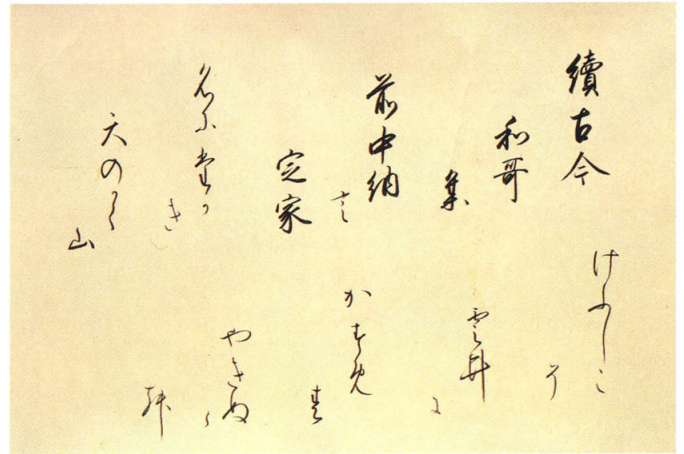 續古今
和哥
集
前中納
言
定家
名にたか
き
天のかく
山
けふしこ
そ
雲井
に
かすめ
春
やきぬ
ら